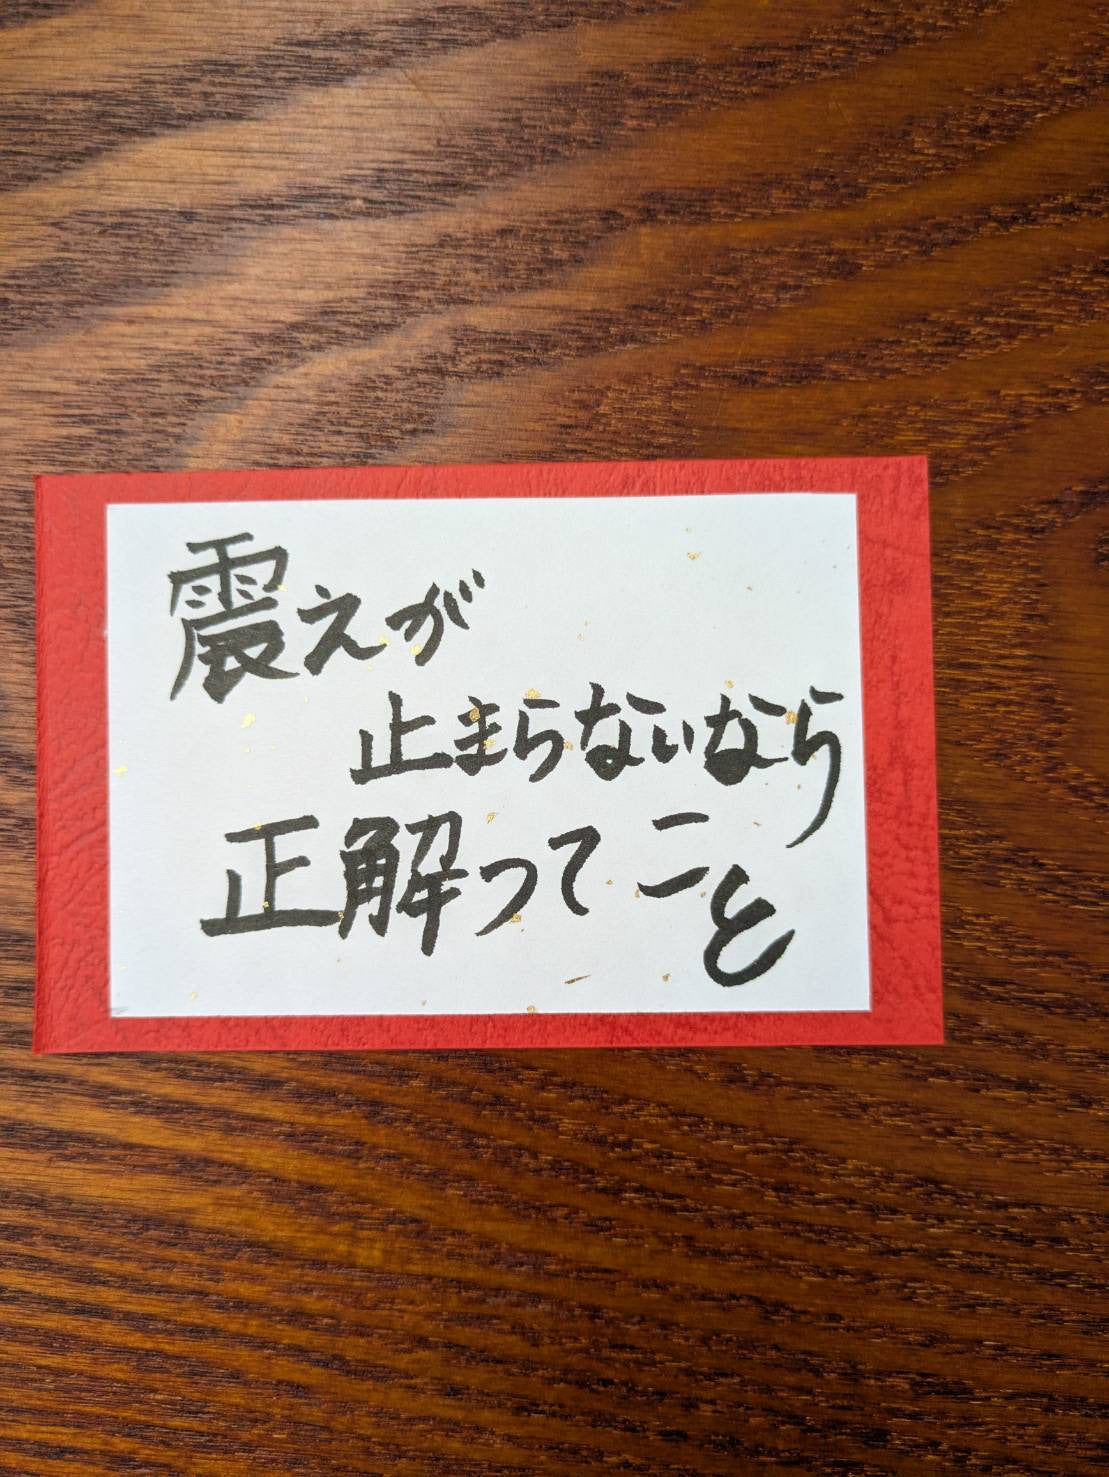 震えが
止まらないなら
正解ってこと